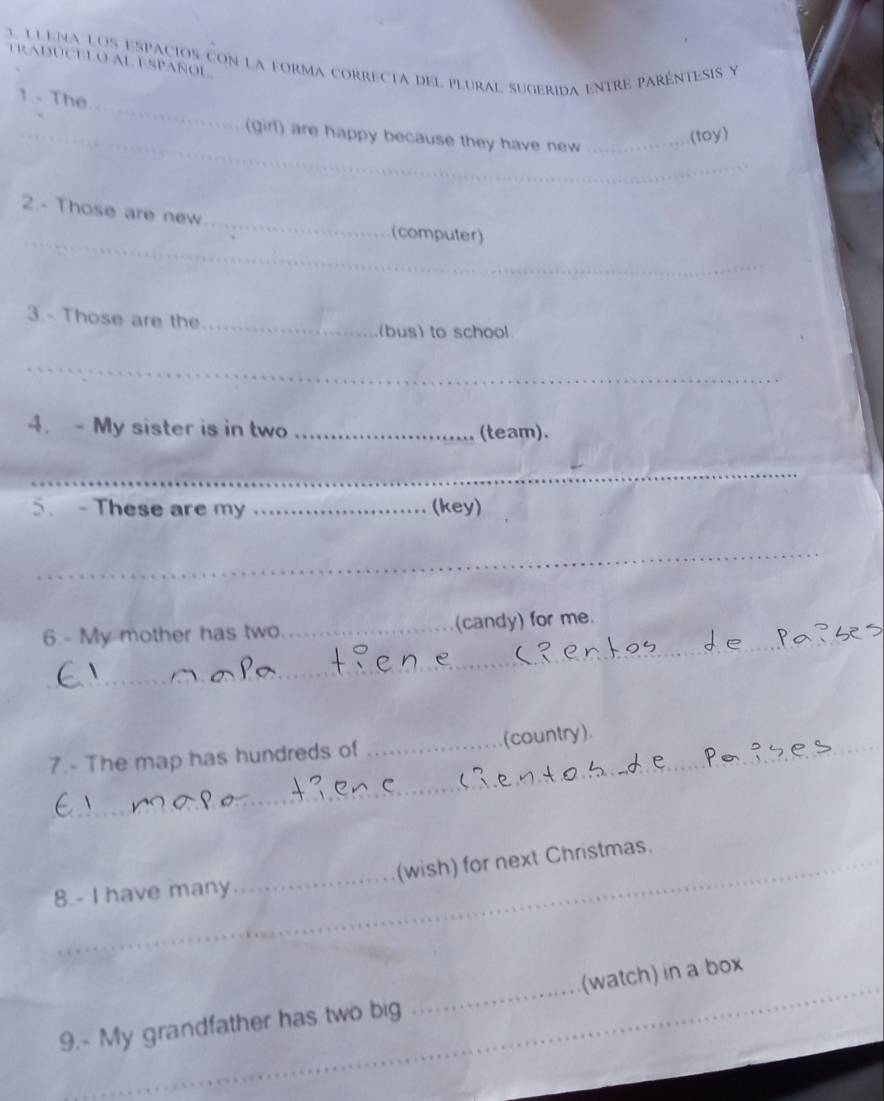 3. LLENA LOS ESPACIOS CON LA FORMA CORRECTA DEL PLURAL SUGERIDA ENTRE PARÉNTESIS Y
TRADÚCELO AL ESPAÑOL.
1.- The....................(girl) are happy because they have new ..............(toy)
2.- Those are new..........................(computer)
3.- Those are the.........................(bus) to school.
4. - My sister is in two ......................... (team).
5. - These are my ........................ (key)
6.- My mother has two........................(candy) for me.
El mapa tiene cientos de países
7.- The map has hundreds of ...................(country).
El mapa tiene cientos de países
8.- I have many.......................(wish) for next Christmas.
9.- My grandfather has two big .......................(watch) in a box